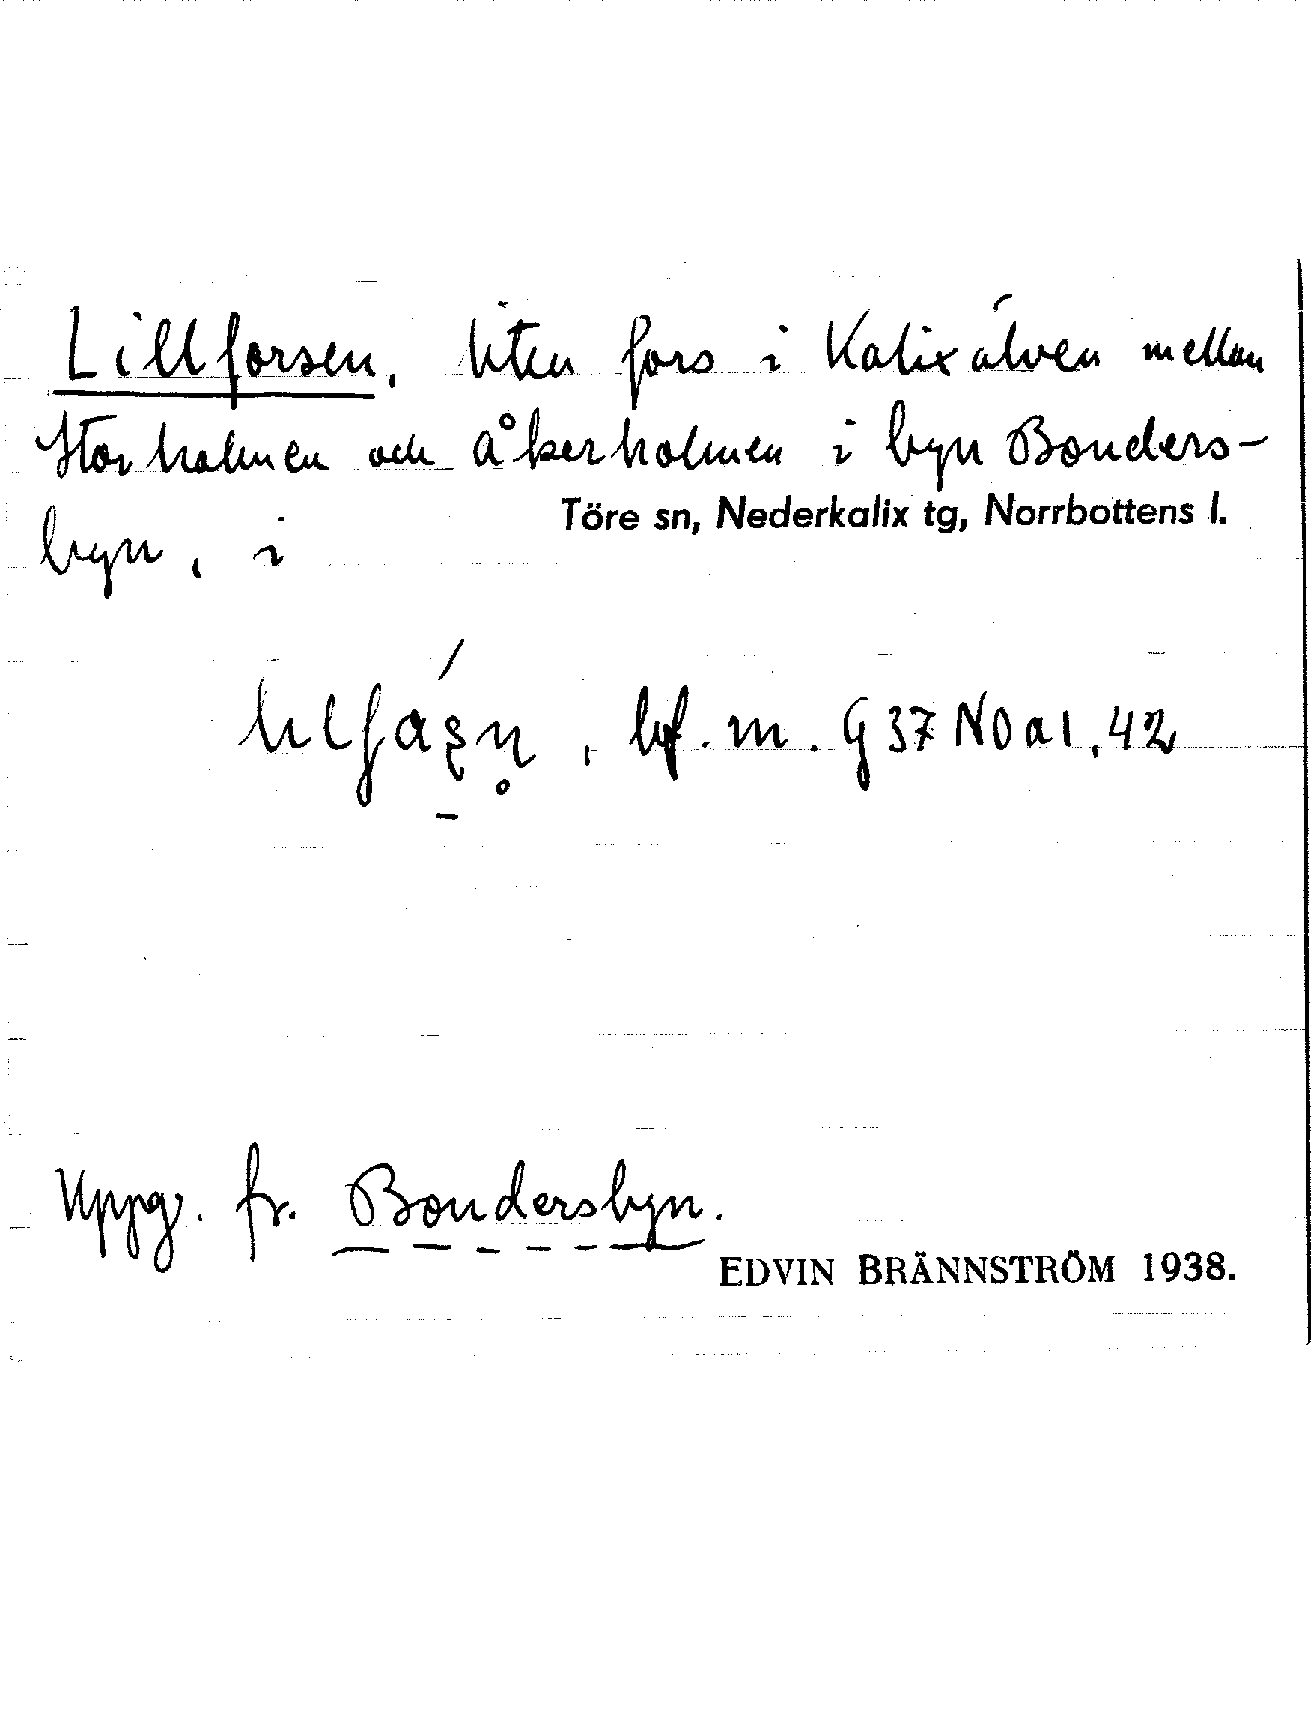 Lillforsen, liten fors i Kalixälven mellan
Storholmen och Åkerholmen i byn Bonders-
Töre sn, Nederkalix tg, Norrbottens l.
byn, i
bf. m. G 37 NO a 1, 42
Uppg. fr. Bondersbyn.
EDVIN BRÄNNSTRÖM 1938.